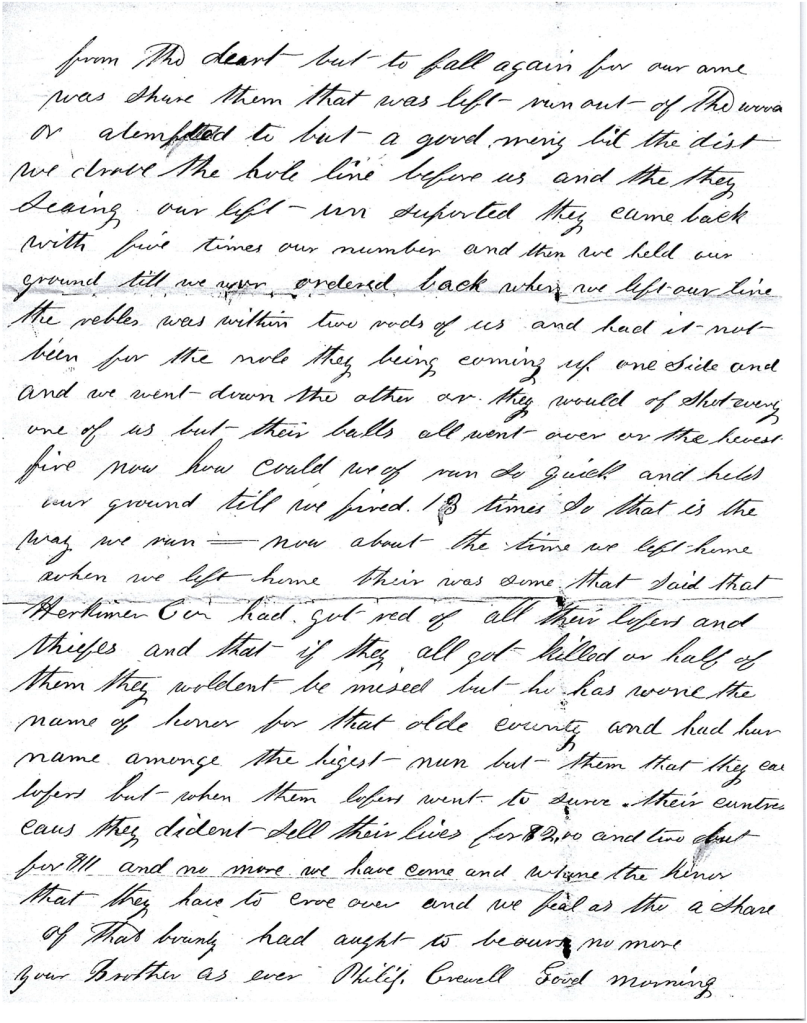 from tho deart but to fall again for our ame
was share them that was left run out of The wood
or atempted to but a good meny bit the dist
we drove the hole line before us and the they
seaing our left un suported they came back
with five times our number and then we held our
ground till we wor ordered back when we left our line
the rebles was within two rods of us and had it not
been for the nole they being coming up one side and
and we went down the other or they would of shot every
one of us but their balls all went over or the hevest
fire now how could we of run so quick and held
our ground till we fired 13 times so that is the
way we run = now about the time we left home
when we left home their was some that said that
Herkimer Con had got red of all their lofers and
thiefes and that if they all got killed or half of
them they woldent be mised but ho has wone the
name of honor for that olde county and had hur
name amonge the higest nun but them that they cal
lofers but when them lofers went to surve their cuntre
caus they dident sell their lives for $2,00 and two but
for $11 and no more we have come and wone the honor
that they have to croe over and we feal as tho a share
of that bounty had aught to beours no more
your Brother as ever Philip. Crewell Good morning